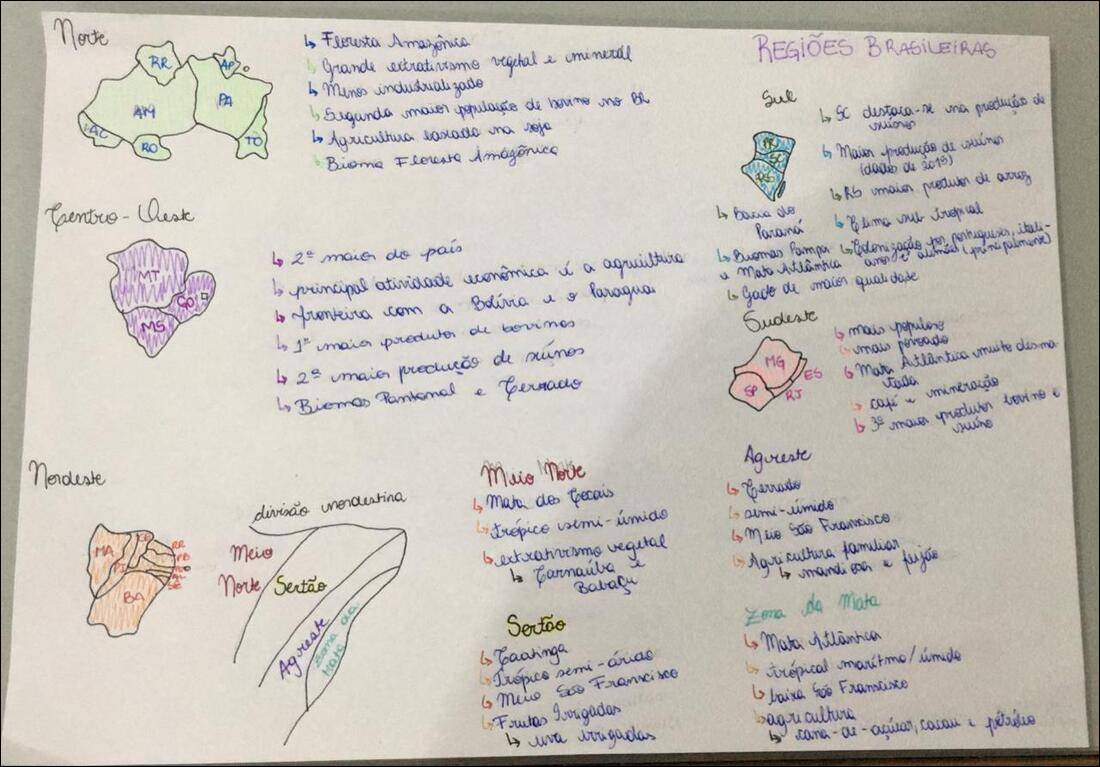 REGIÕES BRASILEIRAS
Norte
RR
AP
AM
PA
AC
RO
TO
Floresta Amazônica
Grande extrativismo vegetal e mineral
Menos industrializado
Segunda maior população de bovino no BR
Agricultura baseada na soja
Bioma Floresta Amazônica
Centro-Oeste
MT
GO
MS
2ª maior do país
principal atividade econômica é a agricultura
fronteira com a Bolívia e o Paraguai
1º maior produtor de bovinos
2ª maior produção de suínos
Biomas Pantanal e Cerrado
Sul
PR
SC
RS
SC destaca-se na produção de
suínos
Maior produção de suínos
(dados de 2019)
RS maior produtor de arroz
Clima sub tropical
Colonização por portugueses, itali-
anos e alemães (principalmente)
Bacia do
Paraná
Biomas Pampa
e Mata Atlântica
Gado de maior qualidade
Sudeste
MG
ES
SP
RJ
mais populoso
mais povoado
Mata Atlântica muito desma-
tada
café e mineração
3º maior produtor bovino e
suíno
Nordeste
MA
PI
CE
BA
RR
PB
AL
SE
divisão nordestina
Meio
Norte
Sertão
Agreste
Zona da
Mata
Meio Norte
Mata dos Cocais
trópico semi-úmido
extrativismo vegetal
Carnaúba e
Babaçu
Sertão
Caatinga
Trópico semi-árido
Meio São Francisco
Frutas Irrigadas
uva irrigadas
Agreste
Cerrado
semi-úmido
Meio São Francisco
Agricultura familiar
mandioca e feijão
Zona da Mata
Mata Atlântica
trópical marítmo/úmido
baixa São Francisco
agricultura
cana-de-açúcar, cacau e petróleo